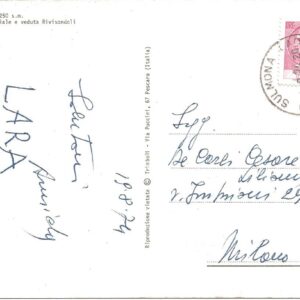 250 s.m.
ale e veduta Rivisondoli
Salutoni
LARA
19.8.74
Riproduzione vietata © Trimboli - Via Puccini, 67 Pescara (Italia)
SULMONA
Sigg
De Carli Cesare
Liliana
Milano